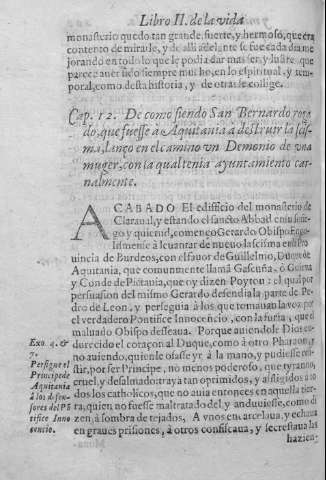 Libro II. de la vida
monasterio quedo tan grande, fuerte, y hermoso, que era
contento de mirarle, y de alli adelante se fue cada dia me
jorando en todo lo que le podia dar mas ser, y lustre, que
parece auer sido siempre mucho, en lo espiritual, y tem-
poral, como desta historia, y de otras se collige.
Cap. 12. De como siendo San Bernardo roga
do, que fuesse a Aquitania a destruir la scis
ma, lanço en el camino vn Demonio de vna
muger, con la qual tenia ayuntamiento car-
nalmente.
ACABADO El edifficio del monasterio de
Claraual, y estando el sancto Abbad en su sosie
go y quietud, començo Gerardo Obispo Engo-
lismense à leuantar de nueuo la scisma en la Pro
uincia de Burdeos, con el fauor de Guillelmo, Duque de
Aquitania, que comunmente llamã Gascuña, ò Guiena
y Conde de Pictauia, que oy dizen Poytou: el qual por
persuasion del mismo Gerardo defendia la parte de Pe-
dro de Leon, y perseguia à los que tomauan la voz por
el verdadero Pontifice Innocencio, con la furia, que el
maluado Obispo desseaua. Porque auiendole Dios en-
durecido el coraçon al Duque, como à otro Pharaon, y
no auiendo, quien le osasse yr à la mano, y pudiesse resi-
stir, por ser Principe, no menos poderoso, que tyrano,
cruel, y desalmado: traya tan oprimidos, y affligidos a to
dos los catholicos, que no auia entonces en aquella tier-
ra, quien no fuesse maltratado del, y anduuiesse, como di
zen, à sombra de tejados. A vnos encarcelaua, y echaua
en graues prisiones, à otros confiscaua, y secrestaua las
hazien-
Exo. 4. &
7.
Persigue el
Principe de
Aquitania
à los defen-
sores del Põ
tifice Inno
cencio.